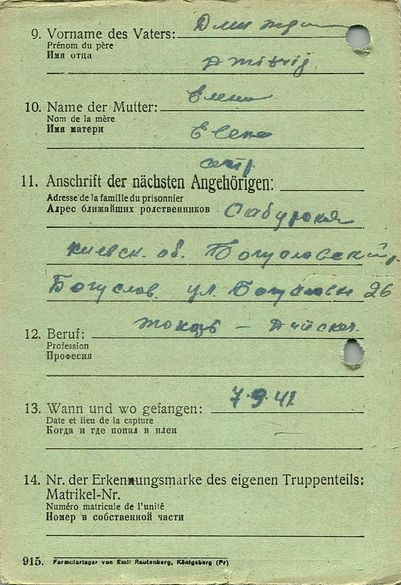 9. Vorname des Vaters:
Prénom du père
Имя отца
10. Name der Mutter: Елена
Nom de la mère
Имя матери Elena
11. Anschrift der nächsten Angehörigen:
Adresse de la famille du prisonnier
Адрес ближайших родственников
Киевск. об.
Богуслов ул. 26
12. Beruf: токарь –
Profession
Професия
13. Wann und wo gefangen: 7.9.41
Date et lieu de la capture
Когда и где попал в плен
14. Nr. der Erkennungsmarke des eigenen Truppenteils:
Matrikel-Nr.
Numéro matricule de l'unité
Номер в собственной части
915. Formularlager von Emil Rautenberg, Königsberg (Pr)